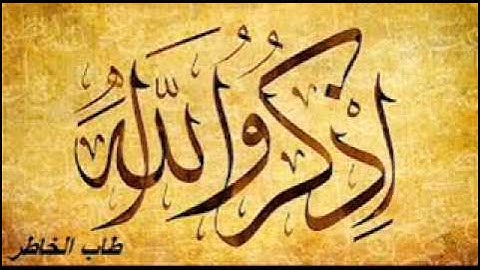 اذْكُرُوا اللّٰهَ
طاب الخاطر